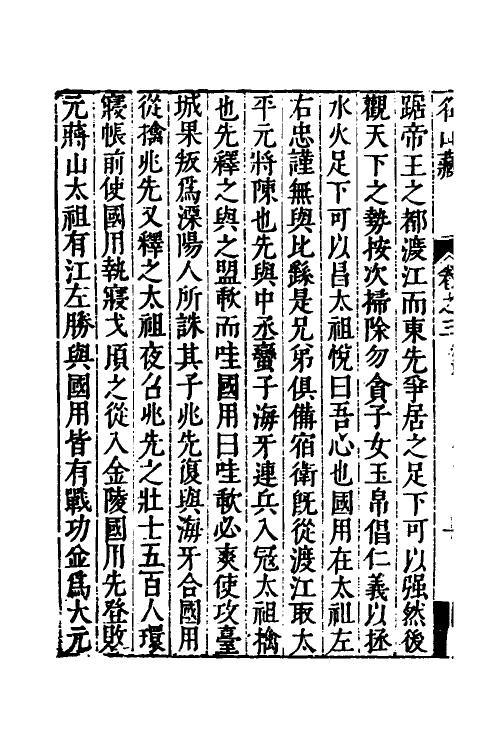 名山藏 卷之三
踞帝王之都渡江而東先爭居之足下可以强然後
觀天下之勢按次掃除勿貪子女玉帛倡仁義以拯
水火足下可以昌太祖悅曰吾心也國用在太祖左
右忠謹無與比繇是兄弟俱備宿衛旣從渡江取太
平元將陳也先與中丞蠻子海牙連兵入冦太祖擒
也先釋之與之盟歃而哇國用曰哇歃必爽使攻臺
城果叛爲深陽人所誅其子兆先復與海牙合國用
從擒兆先又釋之太祖夜召兆先之壯士五百人環
寢帳前使國用執寢戈頃之從入金陵國用先登敗
元蔣山太祖有江左勝與國用皆有戰功金爲大元